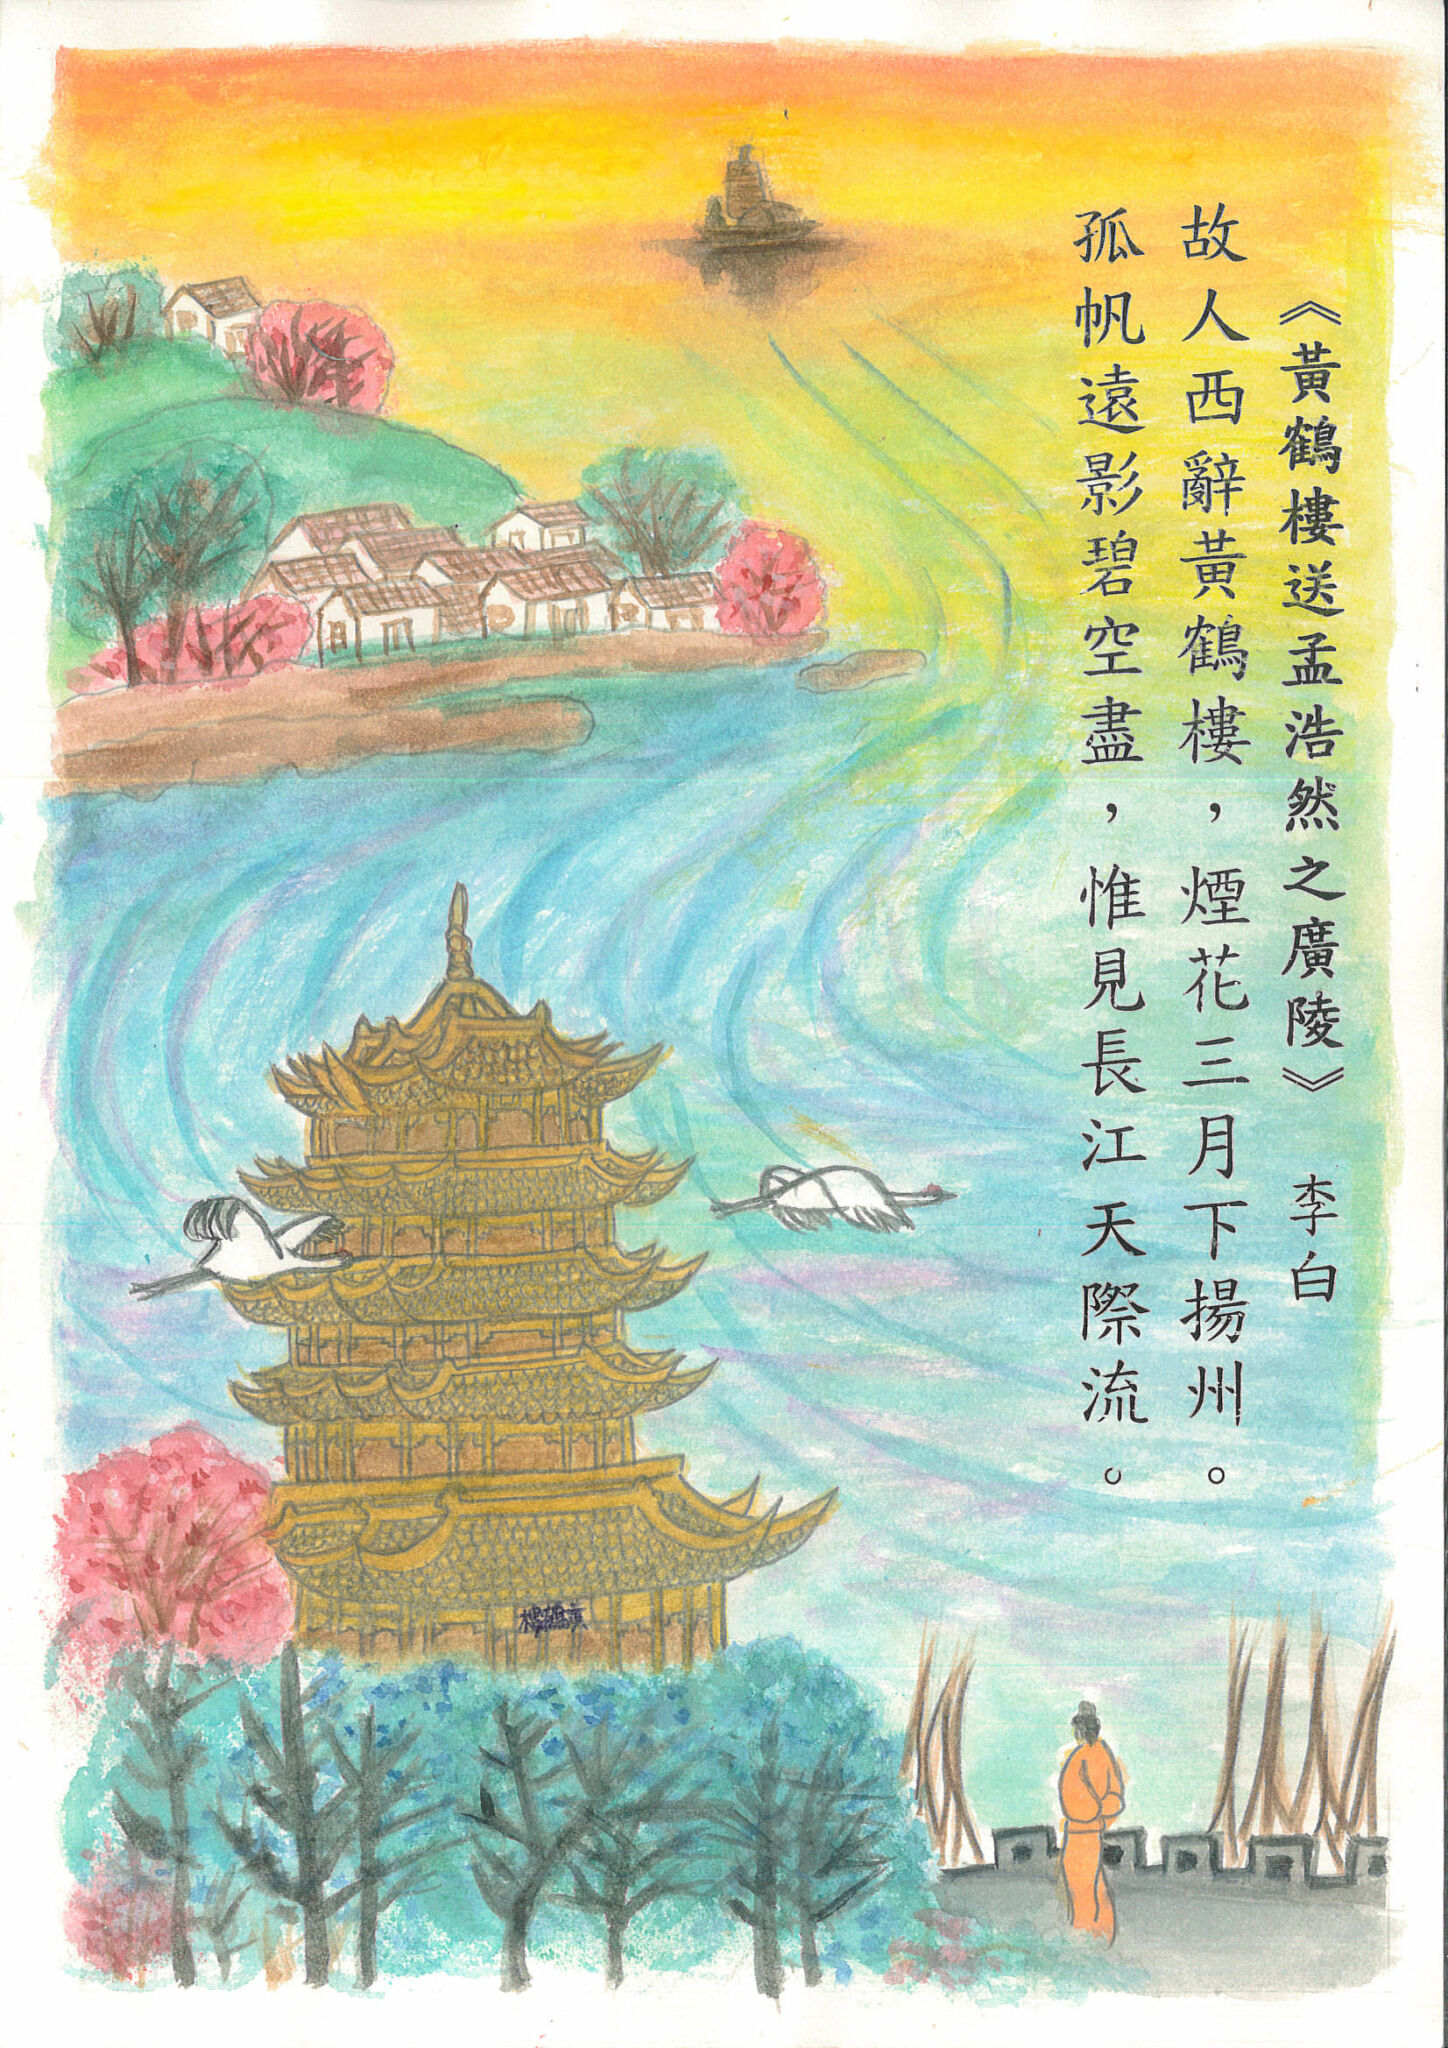 《黃鶴樓送孟浩然之廣陵》 李白
故人西辭黃鶴樓，煙花三月下揚州。
孤帆遠影碧空盡，惟見長江天際流。
黃鶴樓